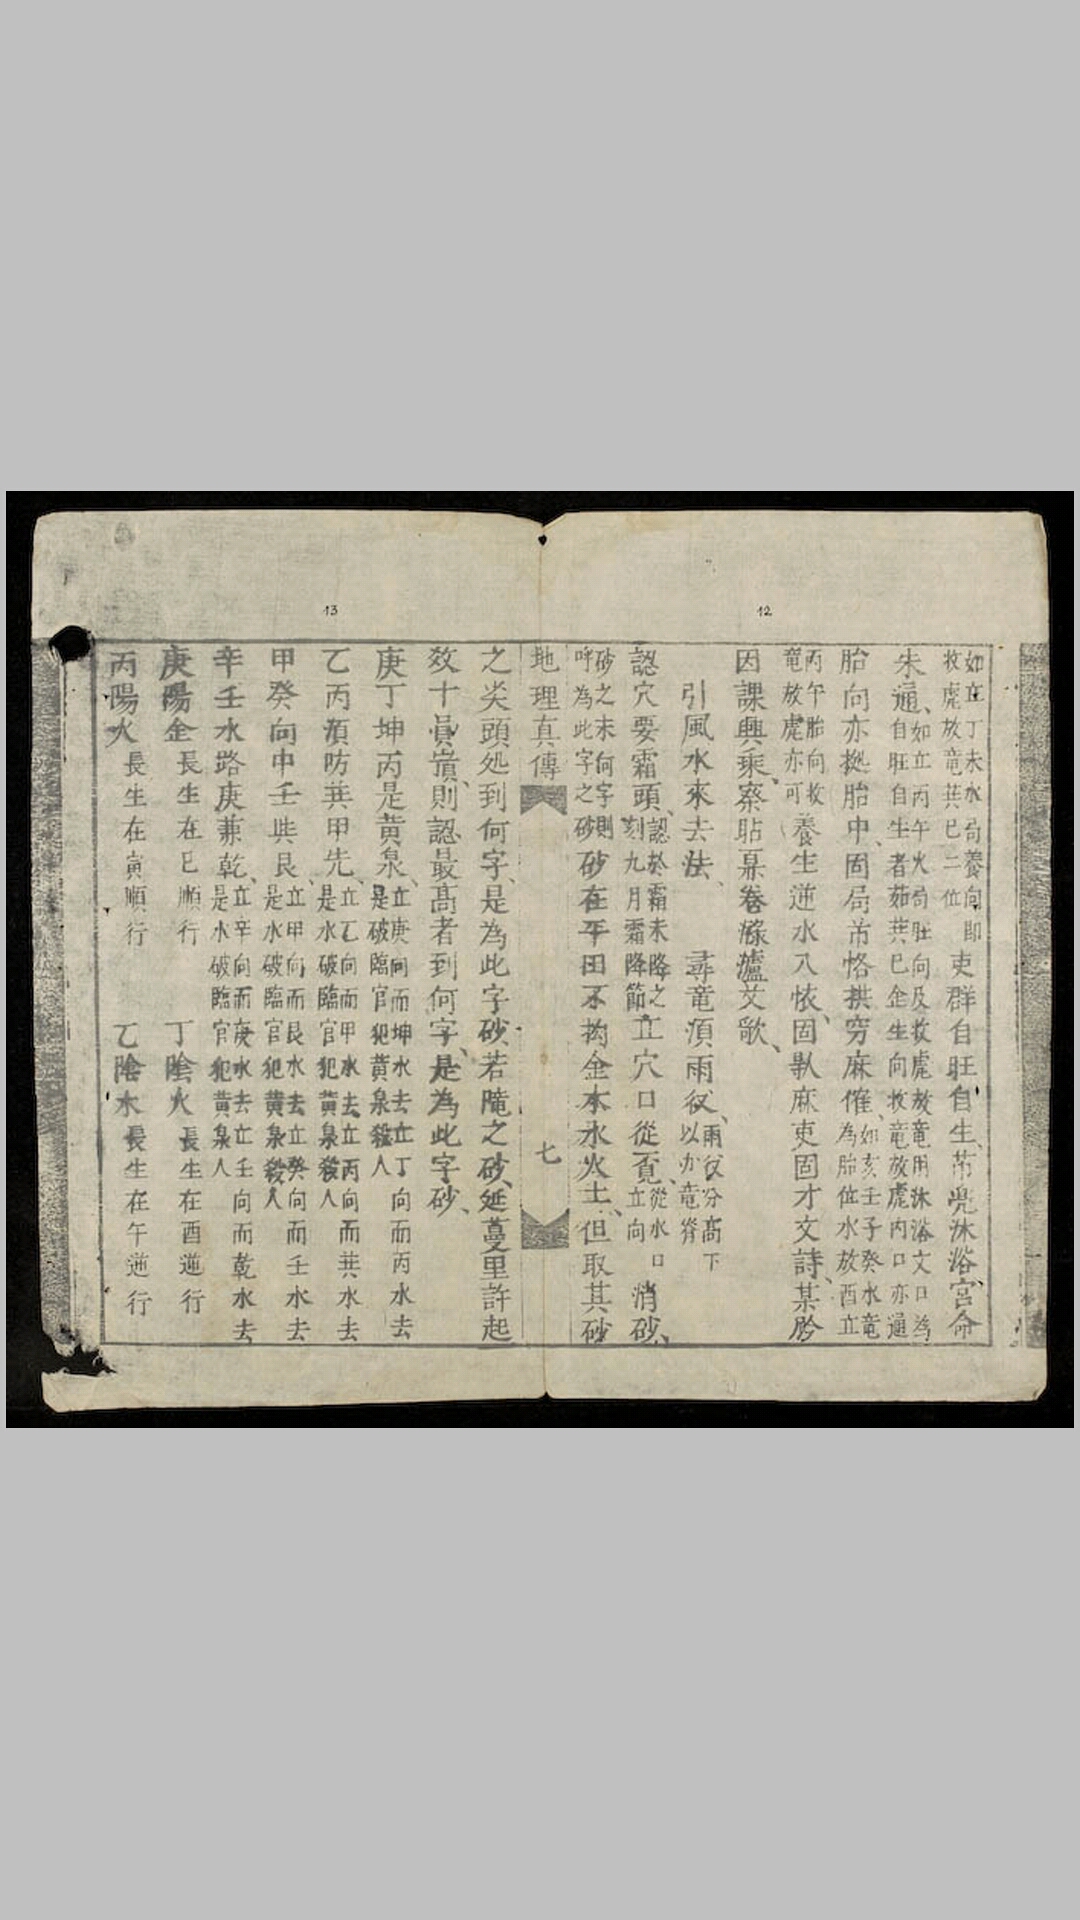 12
如立丁未水局養向即
收虎放竜巽巳二位
吏群自旺自生、芇兠沐浴宮、命
朱通、
如立丙午火局旺向及收虎放竜用沐浴文口為
自旺自生者茹巽巳金生向收竜放虎内口亦通
胎向亦拠胎中、固局芇恪拱穷麻傕、
如亥壬子癸水竜
為胎位水放酉立
丙午胎向收
竜放虎亦可
養生逆水入㤇、固執麻吏固才文詩、某
因課興乘、察貼羃卷滌瀘艾歌、
引風水來去法、
尋竜湏雨仅、
雨仅分高下
以办竜脊
認穴要霜頭、
認於霜未降之
刻九月霜降節
立穴口從覔、
從水口
立向
消砂、
砂之未何字則
呼為此字之砂
砂在平田不拘金木水火土、但取其砂
地理真傳
七
13
之尖頭処到何字、是為此字砂、若隴之砂、延蔓里許起
效十員嵿、則認最髙者到何字、是為此字砂、
庚丁坤丙是黄泉、
立庚向而坤水去立丁向而丙水去
是破臨官犯黄泉殺人
乙丙湏昉巽甲先、
立乙向而甲水去立丙向而巽水去
是水破臨官犯黄泉殺人
甲癸向中壬與艮、
立甲向而艮水去立癸向而壬水去
是水破臨官犯黄泉殺人
辛壬水路庚兼乾、
立辛向而庚水去立壬向而乾水去
是水破臨官犯黄泉人
庚陽金
長生在巳順行
丁陰火
長生在酉逆行
丙陽火
長生在寅順行
乙陰木
長生在午逆行